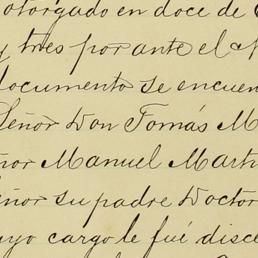 otorgado en doce de
y tres por ante el
documento se encuen
Señor Don Tomás M
ñor Manuel Mart
eñor su padre Doctor
uyo cargo le fué disce